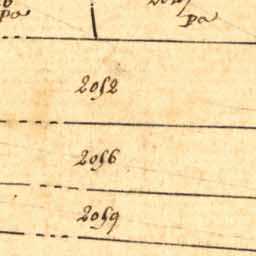 pa
pa
2052
2056
2059